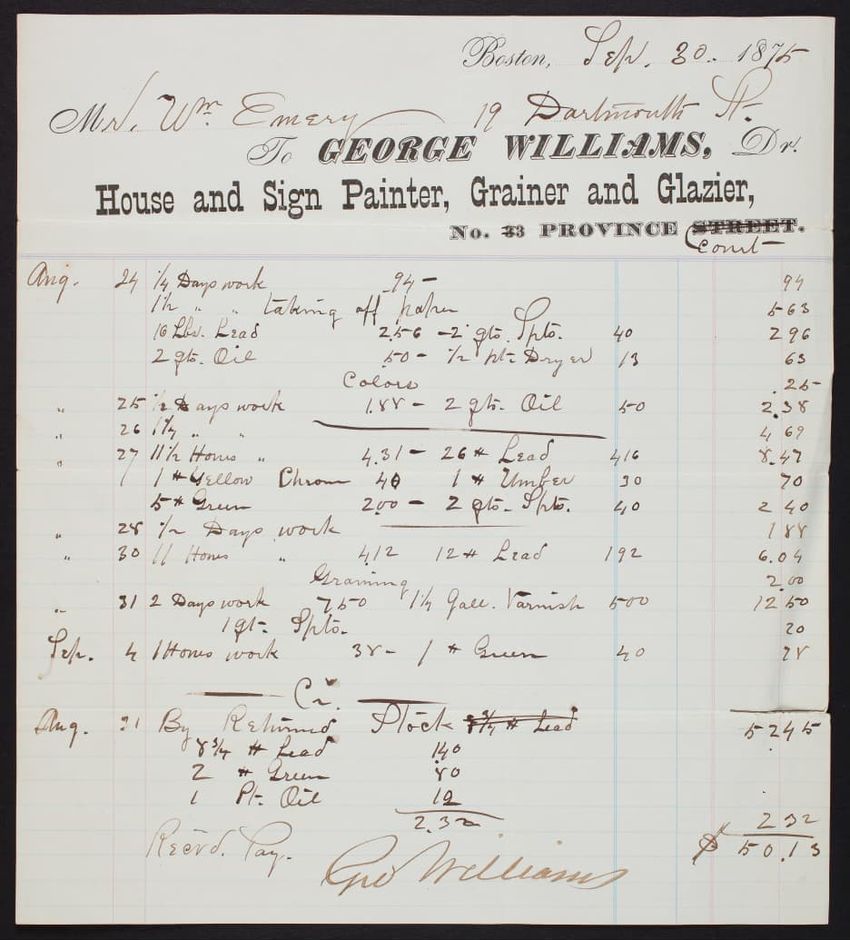 Boston, Sep. 30. 1875
Mr. Wm. Emery 19 Dartmouth St.
To GEORGE WILLIAMS, Dr.
House and Sign Painter, Grainer and Glazier,
No. 33 PROVINCE STREET.
Court
Aug. 24 1/4 Days work 94 - 94
1 1/2 " " taking off paper 5 63
16 Lbs. Lead 2.56 - 2 qts. Spts. 40 2 96
2 qts. Oil 50 - 1/2 pt. Dryer 13 63
Colors .25
" 25 1/2 Days work 1.88 - 2 qts. Oil 50 2.38
" 26 1 1/4 " " 4 69
" 27 11 1/2 Hours " 4.31 - 26 # Lead 416 8.47
1 # Yellow Chrom 40 1 # Umber 30 70
5 # Green 200 - 2 qts. Spts. 40 2 40
" 28 1/2 Days work 1 88
" 30 11 Hours " 412 12 # Lead 192 6.04
Graining 2.00
" 31 2 Days work 750 1 1/4 Gall. Varnish 500 12 50
1 qt. Spts. 20
Sep. 4 1 Hours work 38 - 1 # Green 40 78
Cr.
Aug. 31 By Returned Stock 8 3/4 # Lead 52 45
8 3/4 # Lead 140
2 # Green 80
1 Pt. Oil 12
2.32 2 32
Recvd. Pay. $ 50.13
Geo Williams